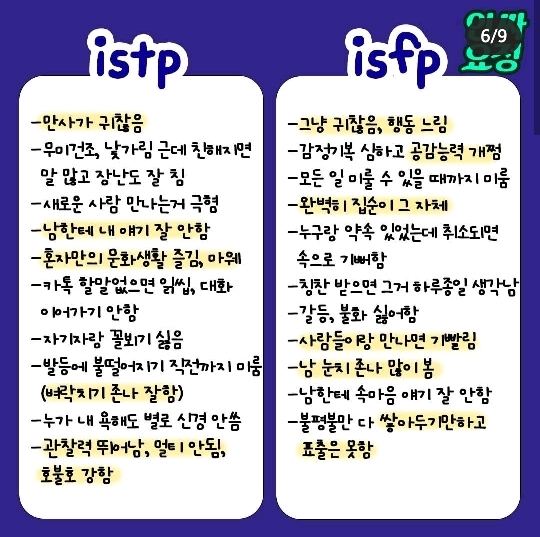 6/9
istp
-만사가 귀찮음
-무미건조, 낯가림 근데 친해지면
말 많고 장난도 잘 침
-새로운 사람 만나는거 극혐
-남한테 내 얘기 잘 안함
-혼자만의 문화생활 즐김, 마웨
-카톡 할말없으면 읽씹, 대화
이어가기 안함
-자기자랑 꼴뵈기 싫음
-발등에 불떨어지기 직전까지 미룸
(벼락치기 존나 잘함)
-누가 내 욕해도 별로 신경 안씀
-관찰력 뛰어남, 멀티 안됨,
호불호 강함
isfp
-그냥 귀찮음, 행동 느림
-감정기복 심하고 공감능력 개쩜
-모든 일 미룰 수 있을 때까지 미룸
-완벽히 집순이 그 자체
-누구랑 약속 있었는데 취소되면
속으로 기뻐함
-칭찬 받으면 그거 하루종일 생각남
-갈등, 불화 싫어함
-사람들이랑 만나면 기빨림
-남 눈치 존나 많이 봄
-남한테 속마음 얘기 잘 안함
-불평불만 다 쌓아두기만하고
표출은 못함